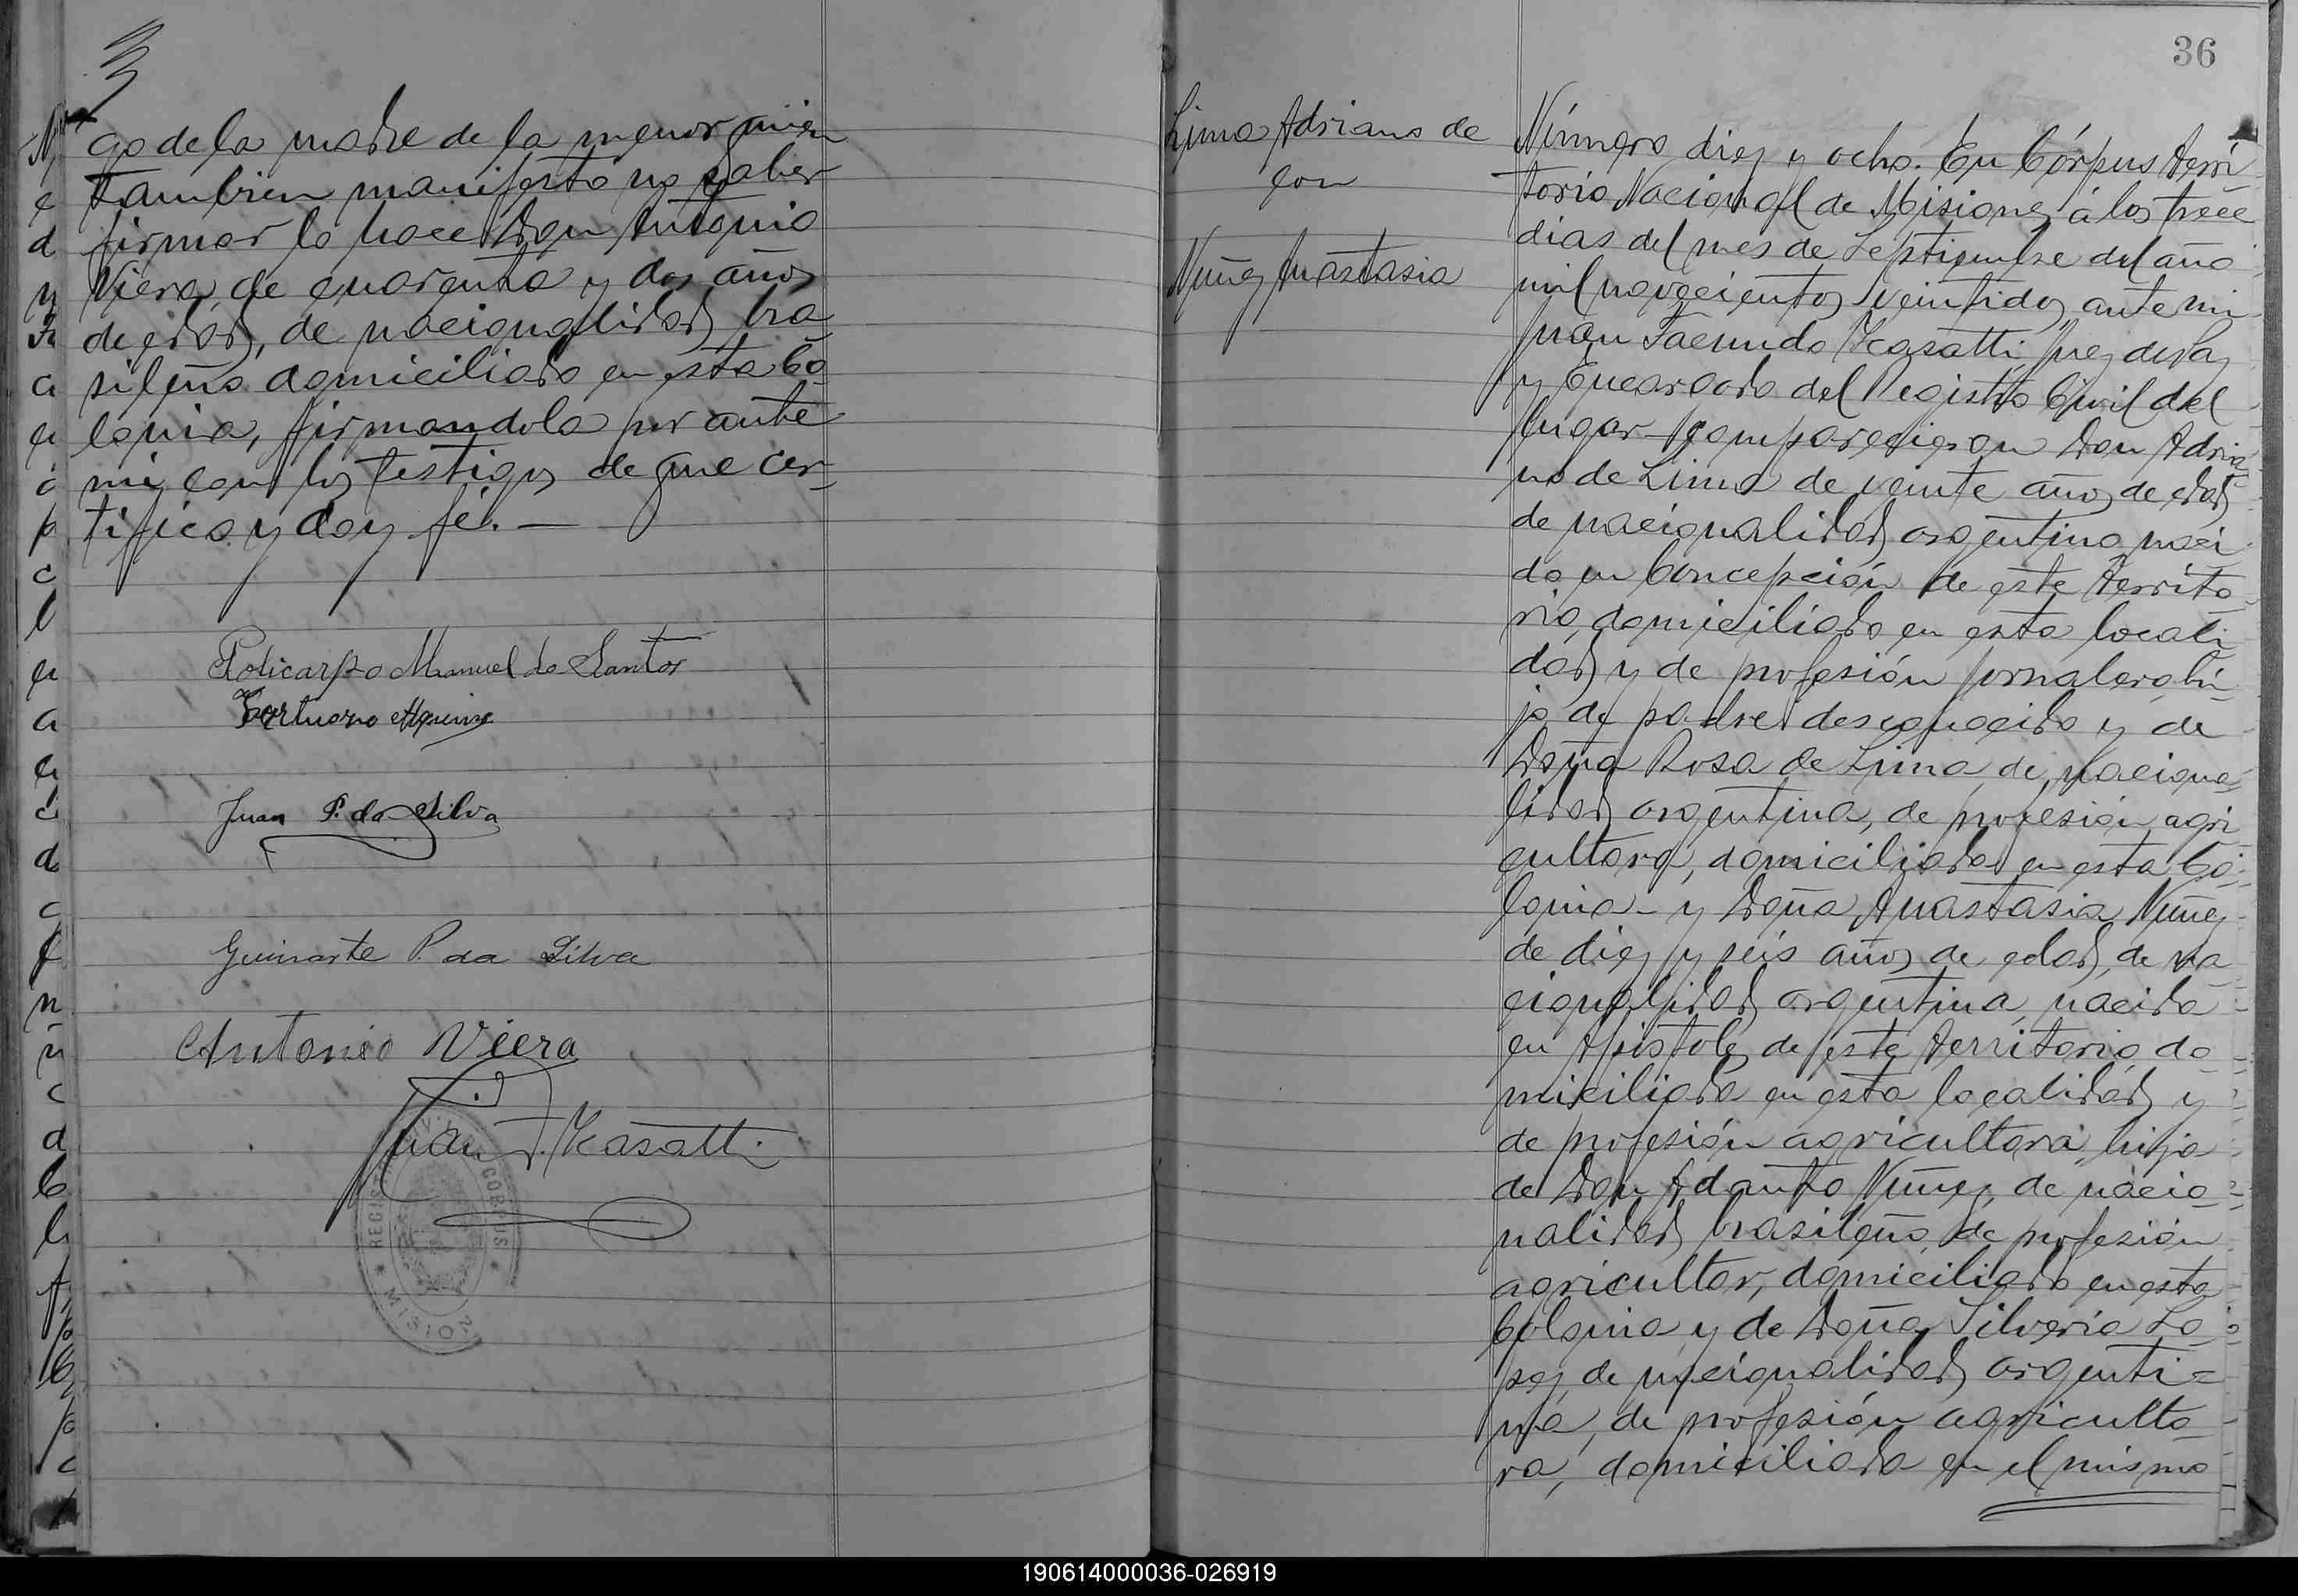 go de la madre de la menor quien
tambien manifestó no saber
firmar lo hace Don Antonio
Viera, de cuarenta y dos años
de edad, de nacionalidad bra
sileña domiciliado en esta Co
lonia, firmandola por ante
mi con los testigos de que cer-
tifico y doy fé. —
Policarpo Manuel do Santos
Juan P. da Silva
Guimarte P. da Silva
Antonio Viera
Juan F. Kasatti
REGIST CIVIL CORPUS
* MISIONES *
36
Lima Adriano de
con
Nuñez Anastasia
Número diez y ocho. En Córpus Terri
torio Nacional de Misiones, á los trece
dias del mes de Septiembre del año
mil novecientos veintidos, ante mi
Juan Facundo Kasatti, Juez de Paz
y Encargado del Registro Civil del
lugar comparecieron Don Adria
no de Lima de veinte años de edad
de nacionalidad argentino naci
do en Concepción de este Territo
rio, domiciliado en esta locali
dad y de profesión jornalero hi
jo de padre desconocido y de
Doña Rosa de Lima de naciona
lidad argentina, de profesión agri
cultora, domiciliada en esta Co
lonia - y Doña Anastasia Nuñez
de diez y seis años de edad, de na
cionalidad argentina, nacida
en Apóstoles de este Territorio do
miciliada en esta localidad y
de profesión agricultora, hija
de Don Adanto Nuñez, de nacio
nalidad brasileño, de profesión
agricultor, domiciliado en esta
Colonia y de Doña Silveria Lo
pez, de nacionalidad argenti=
na, de profesión agriculto
ra, domiciliada en el mismo
190614000036-026919